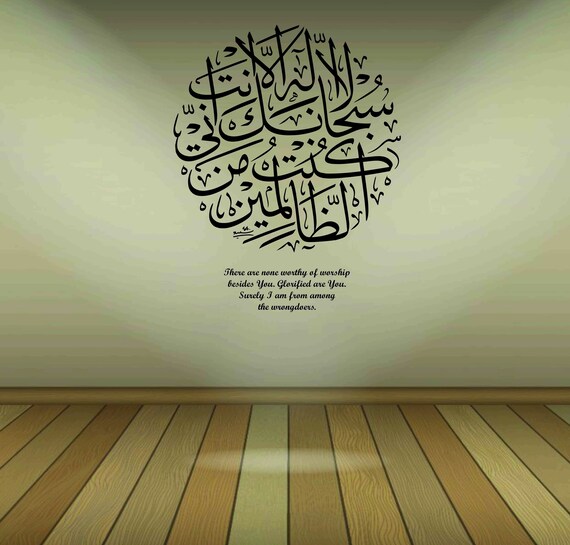 لا إله إلا أنت
سبحانك إني
كنت من
الظالمين
There are none worthy of worship
besides You. Glorified are You.
Surely I am from among
the wrongdoers.